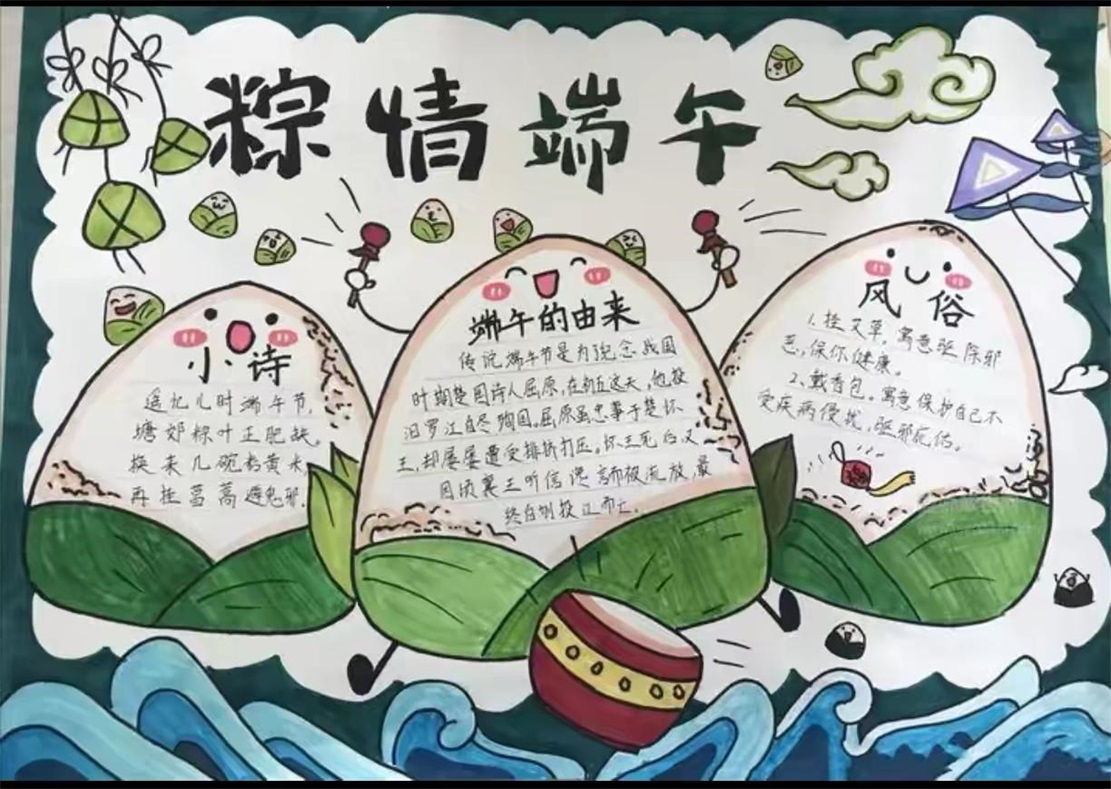 粽情端午
小诗
遥忆儿时端午节,
塘郊粽叶正肥缺。
换来几碗粘黄米,
再挂菖蒿避鬼邪.
端午的由来
传说端午节是为了纪念战国
时期楚国诗人屈原,在初五这天,他投
汨罗江自尽殉国。屈原虽忠事于楚怀
王,却屡屡遭受排挤打压。怀王死后又
因顷襄王听信谗言而被流放,最
终自刎投江而亡.
风俗
1.挂艾草,寓意驱除邪
恶,保你健康。
2、戴香包。寓意保护自己不
受疾病侵扰,驱邪